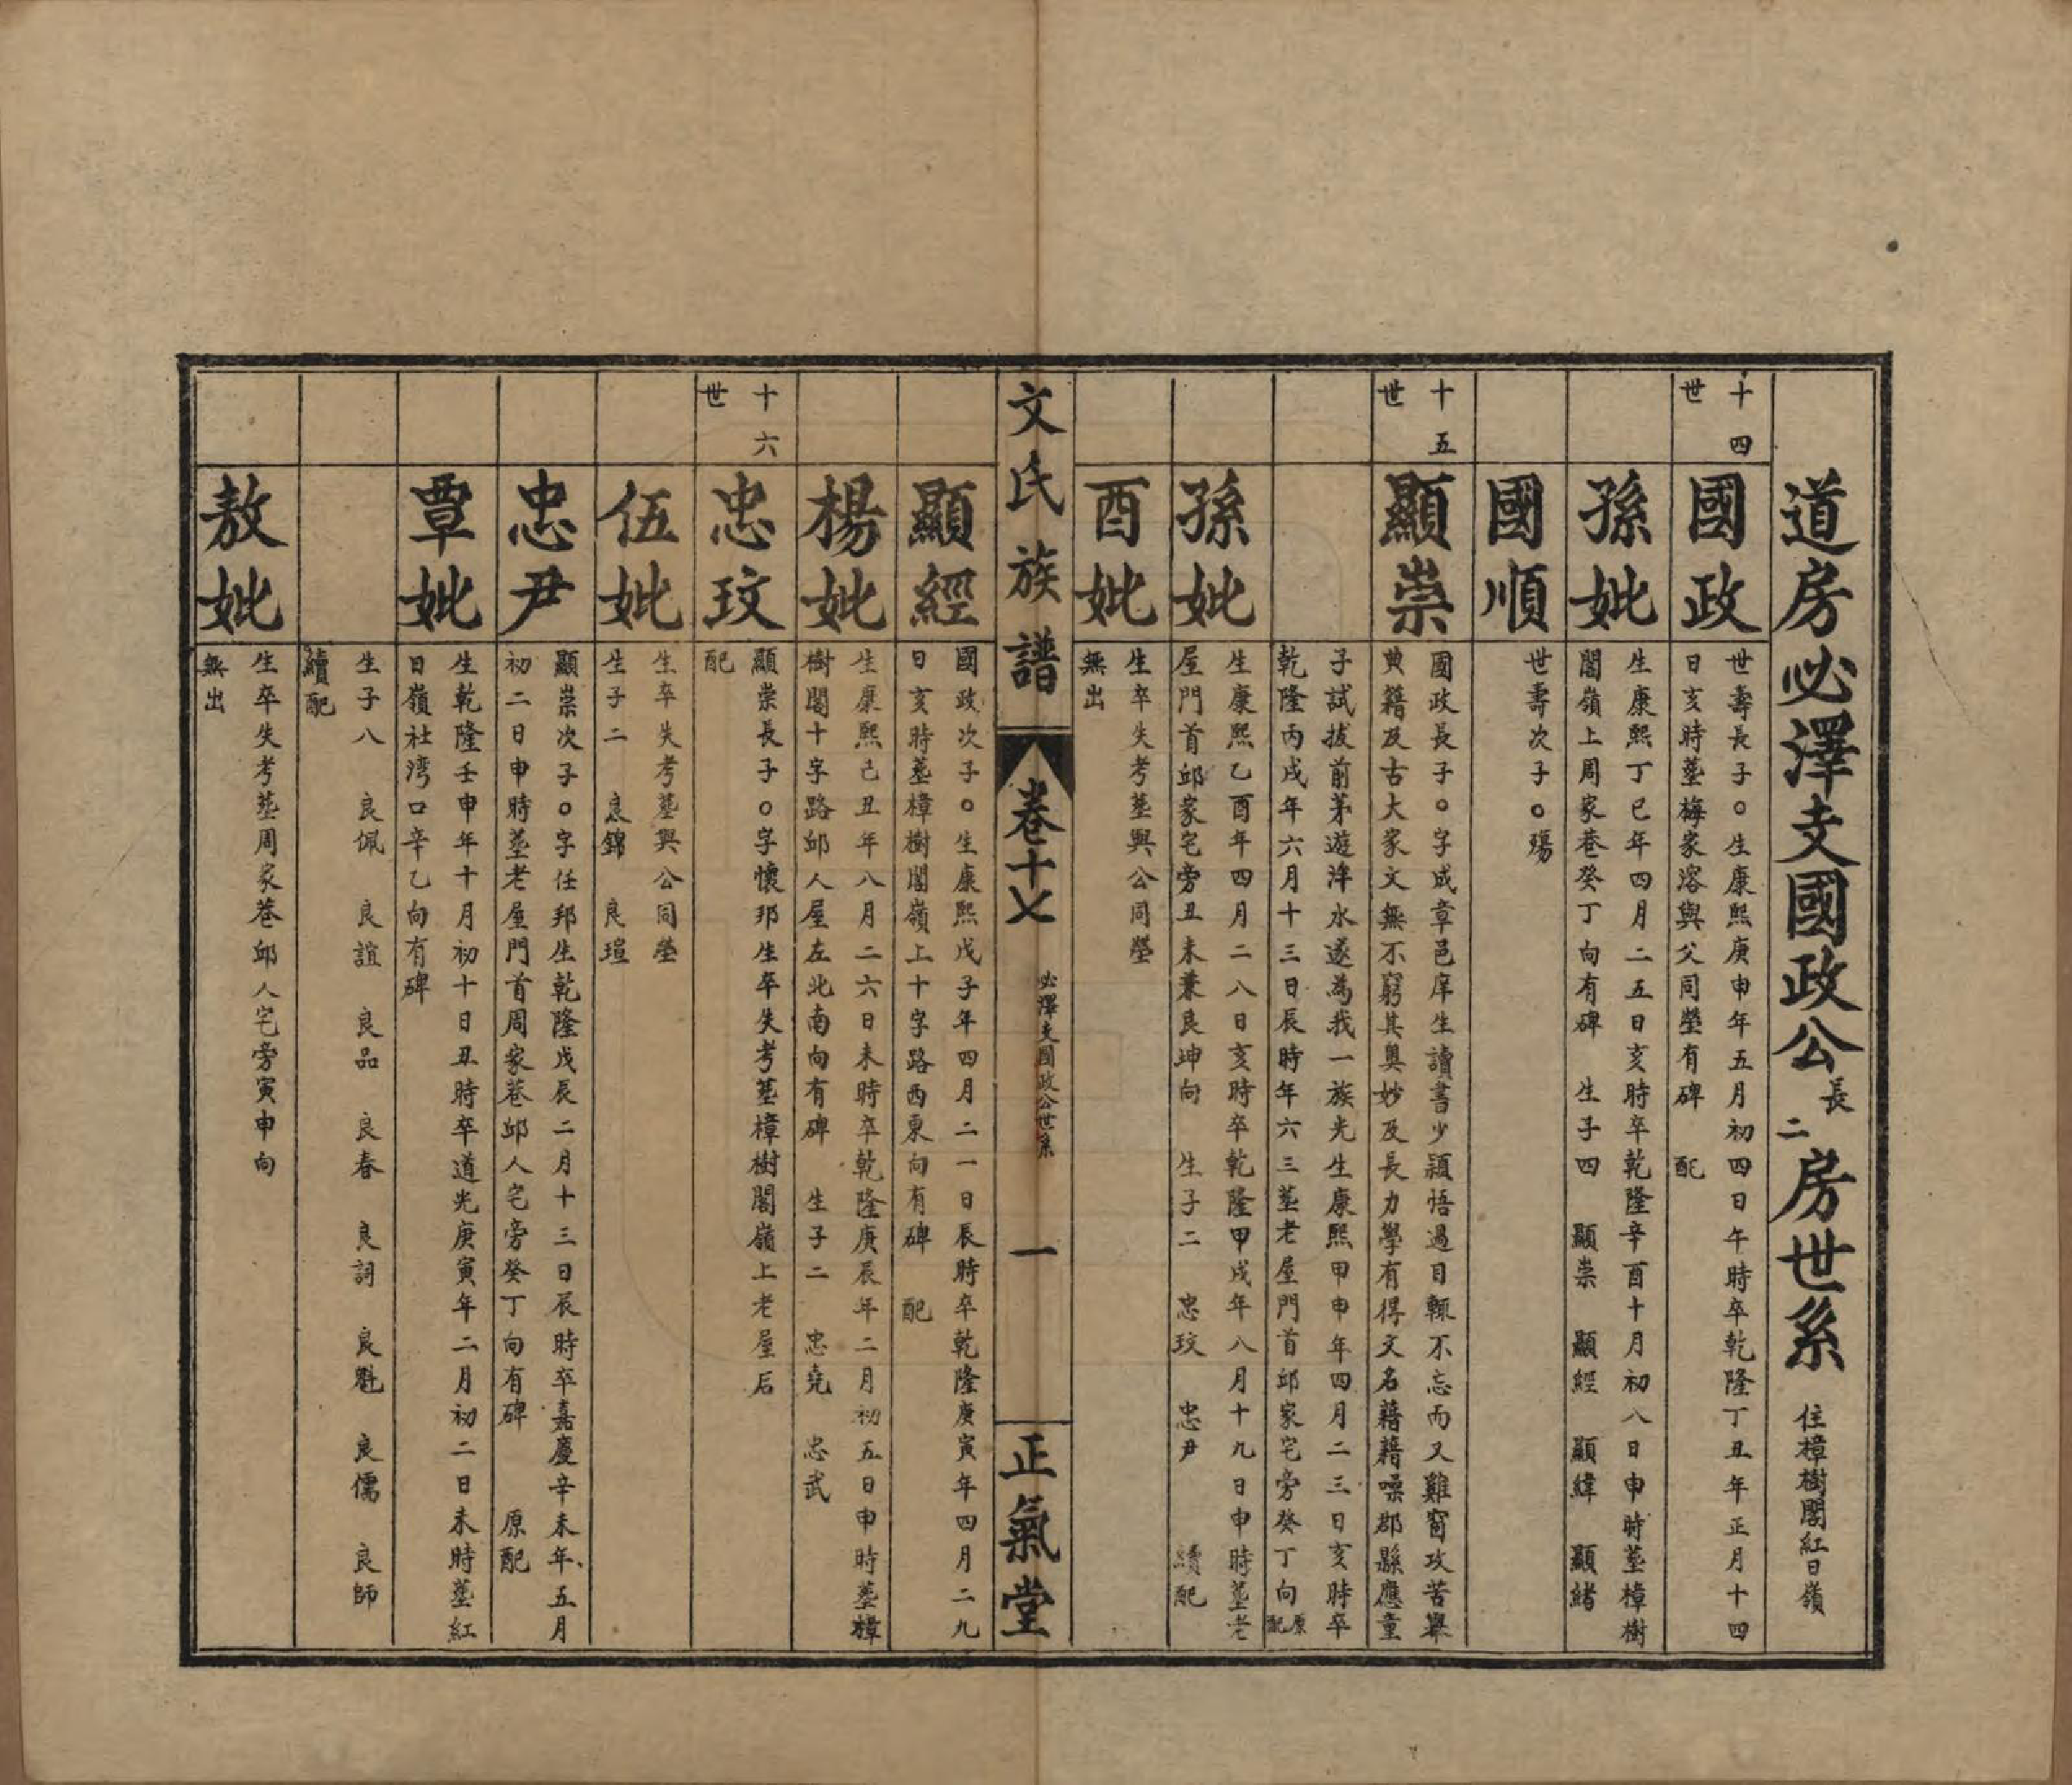 道房必澤支國政公長二房世系 住樟樹閣紅日嶺
十四世
國政
世壽長子○生康熙庚申年五月初四日午時卒乾隆丁丑年正月十四
日亥時塟梅家溶與父同塋有碑 配
孫妣
生康熙丁巳年四月二五日亥時卒乾隆辛酉十月初八日申時塟樟樹
閣嶺上周家巷癸丁向有碑 生子四 顯崇 顯經 顯緯 顯緒
國順
世壽次子○殤
十五世
顯崇
國政長子○字成章邑庠生讀書少穎悟過目輒不忘而又雞窗攻苦舉
典籍及古大家文無不窮其奧妙及長力學有得文名藉藉噪郡縣應童
子試拔前茅遊泮水遂為我一族光生康熙甲申年四月二三日亥時卒
乾隆丙戌年六月十三日辰時年六三塟老屋門首邱家宅旁癸丁向原配
孫妣
生康熙乙酉年四月二八日亥時卒乾隆甲戌年八月十九日申時塟老
屋門首邱家宅旁丑未兼艮坤向 生子二 忠玟 忠尹 續配
酉妣
生卒失考塟與公同塋
無出
文氏族譜 卷十七 必澤支國政公世系 一 正氣堂
顯經
國政次子○生康熙戊子年四月二一日辰時卒乾隆庚寅年四月二九
日亥時塟樟樹閣嶺上十字路西東向有碑 配
楊妣
生康熙己丑年八月二六日未時卒乾隆庚辰年二月初五日申時塟樟
樹閣十字路邱人屋左北南向有碑 生子二 忠堯 忠武
十六世
忠玟
顯崇長子○字懷邦生卒失考塟樟樹閣嶺上老屋后
配
伍妣
生卒失考塟與公同塋
生子二 良錦 良瑄
忠尹
顯崇次子○字任邦生乾隆戊辰二月十三日辰時卒嘉慶辛未年五月
初二日申時塟老屋門首周家巷邱人宅旁癸丁向有碑 原配
覃妣
生乾隆壬申年十月初十日丑時卒道光庚寅年二月初二日未時塟紅
日嶺社湾口辛乙向有碑
生子八 良佩 良誼 良品 良春 良詞 良魁 良儒 良師
續配
敖妣
生卒失考塟周家巷邱人宅旁寅申向
無出